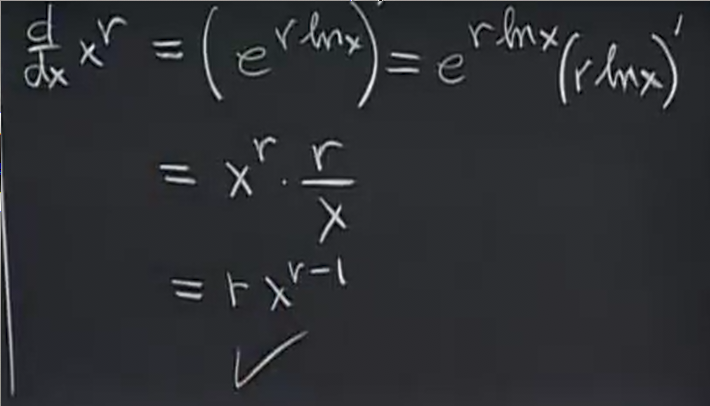 d/dx x^r = (e^{r ln x})' = e^{r ln x} (r ln x)'
= x^r · r/x
= r x^{r-1}
✓